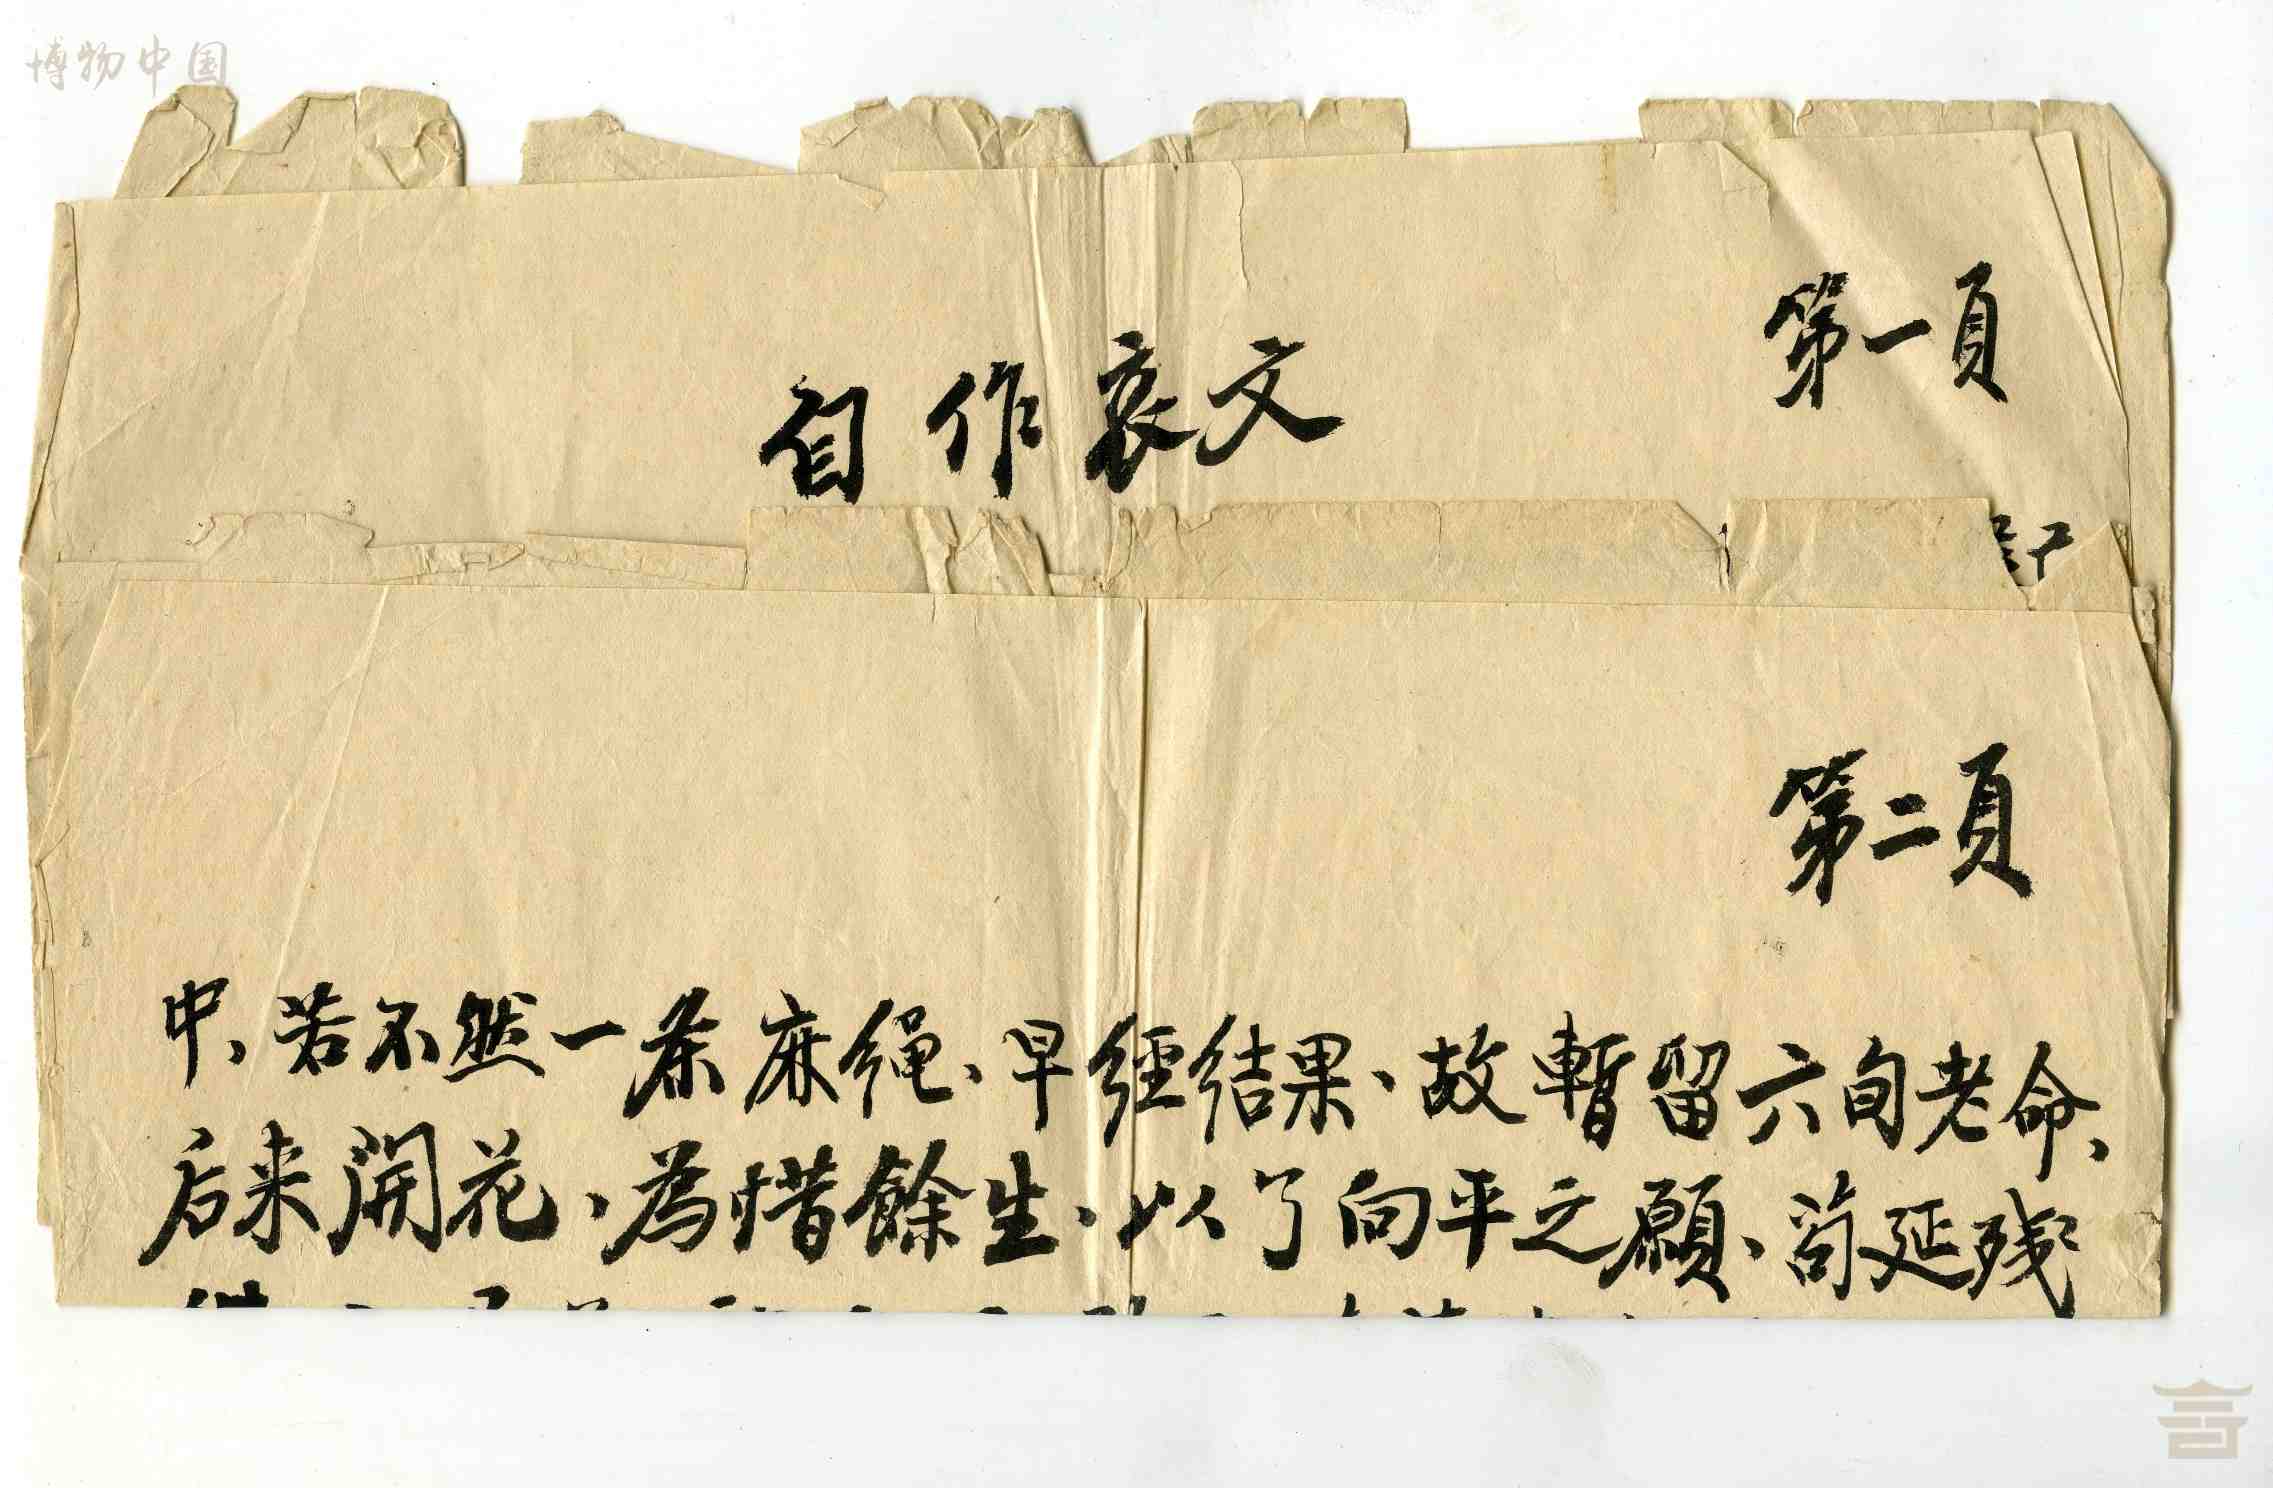 博物中国
第一頁
自作哀文
第二頁
中、若不然一条麻绳、早經结果、故暫留六旬老命、
后来開花、為惜餘生、以了向平之願、苟延残